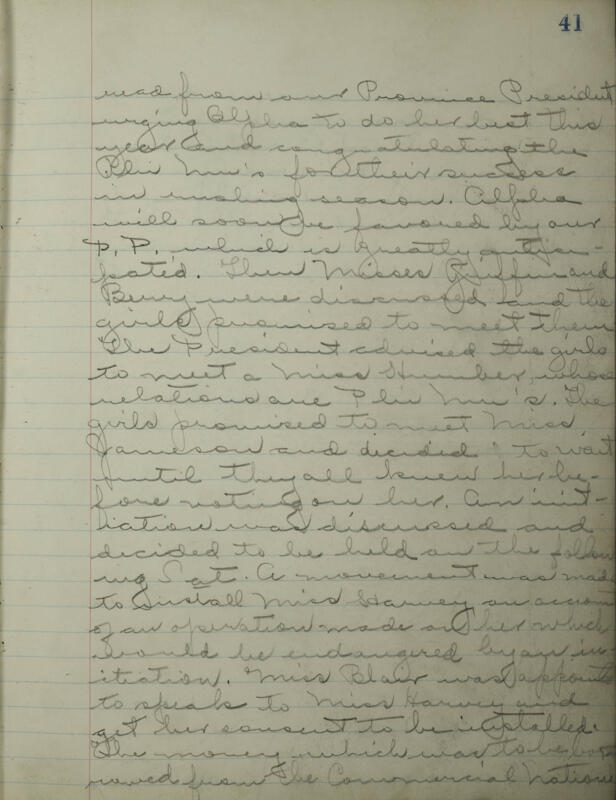 41
read from our Province President
urging Alpha to do her best this
year and congratulating the
Phi Mu's for their success
in rushing season. Alpha
will soon be favored by our
P. P. which is greatly antici-
pated. Then Misses Ruffin and
Berry were discussed and the
girls promised to meet them.
The President advised the girls
to meet a Miss Humber, whose
relations are Phi Mu's. The
girls promised to meet Miss
Jameson and decided to wait
until they all knew her be-
fore voting on her. An init-
iation was discussed and
decided to be held on the follow
ing Sat. A movement was mad
to install Miss Harvey on accoun
of an operation made on her which
would be endangered by an in-
itiation. Miss Blair was appoint
to speak to Miss Harvey and
get her consent to be installed.
The money which was to be bor
rowed from the Commercial Nationa